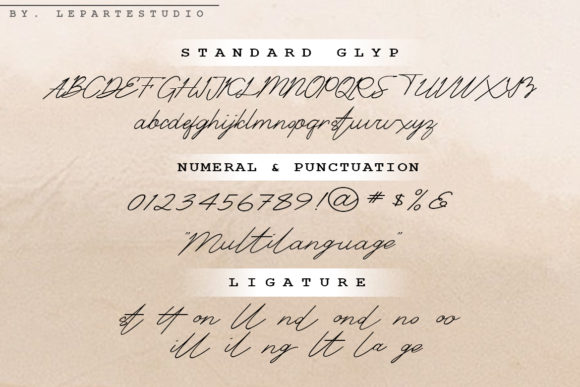 BY. LEPARTESTUDIO
STANDARD GLYP
ABCDEFGHIJKLMNOPQRSTUVWXYZ
abcdefghijklmnopqrstuvwxyz
NUMERAL & PUNCTUATION
0123456789!@#$%&
"Multilanguage"
LIGATURE
st tt on ll nd ond no oo
ill il ng lt la ge